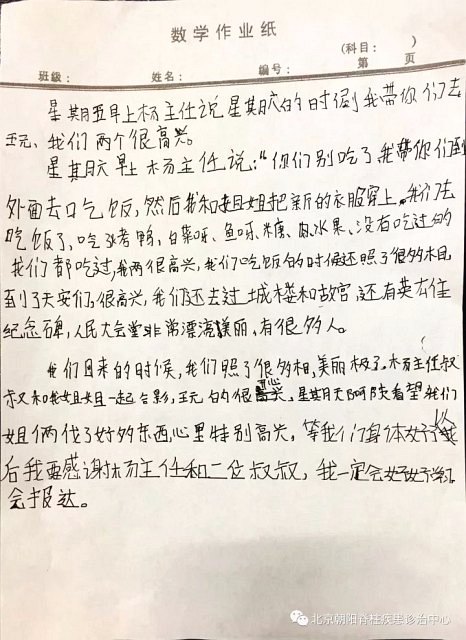 数学作业纸
(科目： )
班级： 姓名： 编号： 第 页
星期五早上杨主任说星其六的时候我带你们去
玩、我们两个很高兴。
星其六早上杨主任说："你们别吃了我带你们到
外面去吃饭，然后我和姐姐把新的衣服穿上，我们去
吃饭了，吃烤鸭，白菜呀、鱼呀、糖、肉、水果、没有吃过的
我们都吃过，我两很高兴，我们吃饭的时候还照了很多相
到了天安们，很高兴，我们还去过城楼和故宫，还有英右住
纪念碑，人民大会堂非常漂亮美丽，有很多人。
我们回来的时候，我们照了很多相，美丽极了。杨主任叔
叔又和我姐姐一起合影，玩的很高兴。星其天阿陕看望我们
姐俩代了好多东西，心里特别高兴，等我们身体好了以
后我要感谢杨主任和二位叔叔，我一定会好好学习
会报达。
北京朝阳脊柱疾患诊治中心